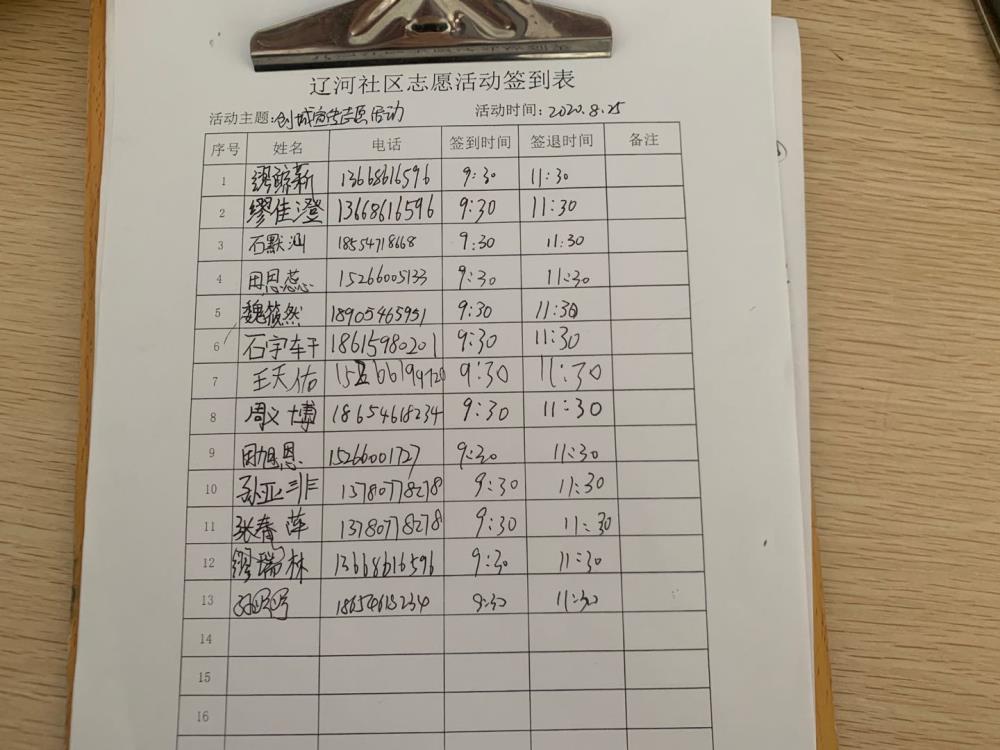 辽河社区志愿活动签到表
活动主题:创城宣传志愿活动 活动时间:2020.8.25
序号 姓名 电话 签到时间 签退时间 备注
1 缪 新 13668616596 9:30 11:30
2 缪佳澄 13668616596 9:30 11:30
3 石默汕 18554718668 9:30 11:30
4 田恩蕊 15266005133 9:30 11:30
5 魏筱然 18905465951 9:30 11:30
6 石宇轩 18615980201 9:30 11:30
7 王天佑 9:30 11:30
8 周义博 18654618234 9:30 11:30
9 田旭恩 15266001727 9:30 11:30
10 孙亚菲 13780778278 9:30 11:30
11 张春萍 13780778278 9:30 11:30
12 缪瑞林 13668616596 9:30 11:30
13 18654618234 9:30 11:30
14
15
16